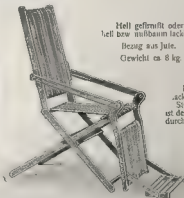 Hell gefirnißt oder
hell bzw nußbaum lack
Bezug aus Jute.
Gewicht ca 8 kg
ist de
durch